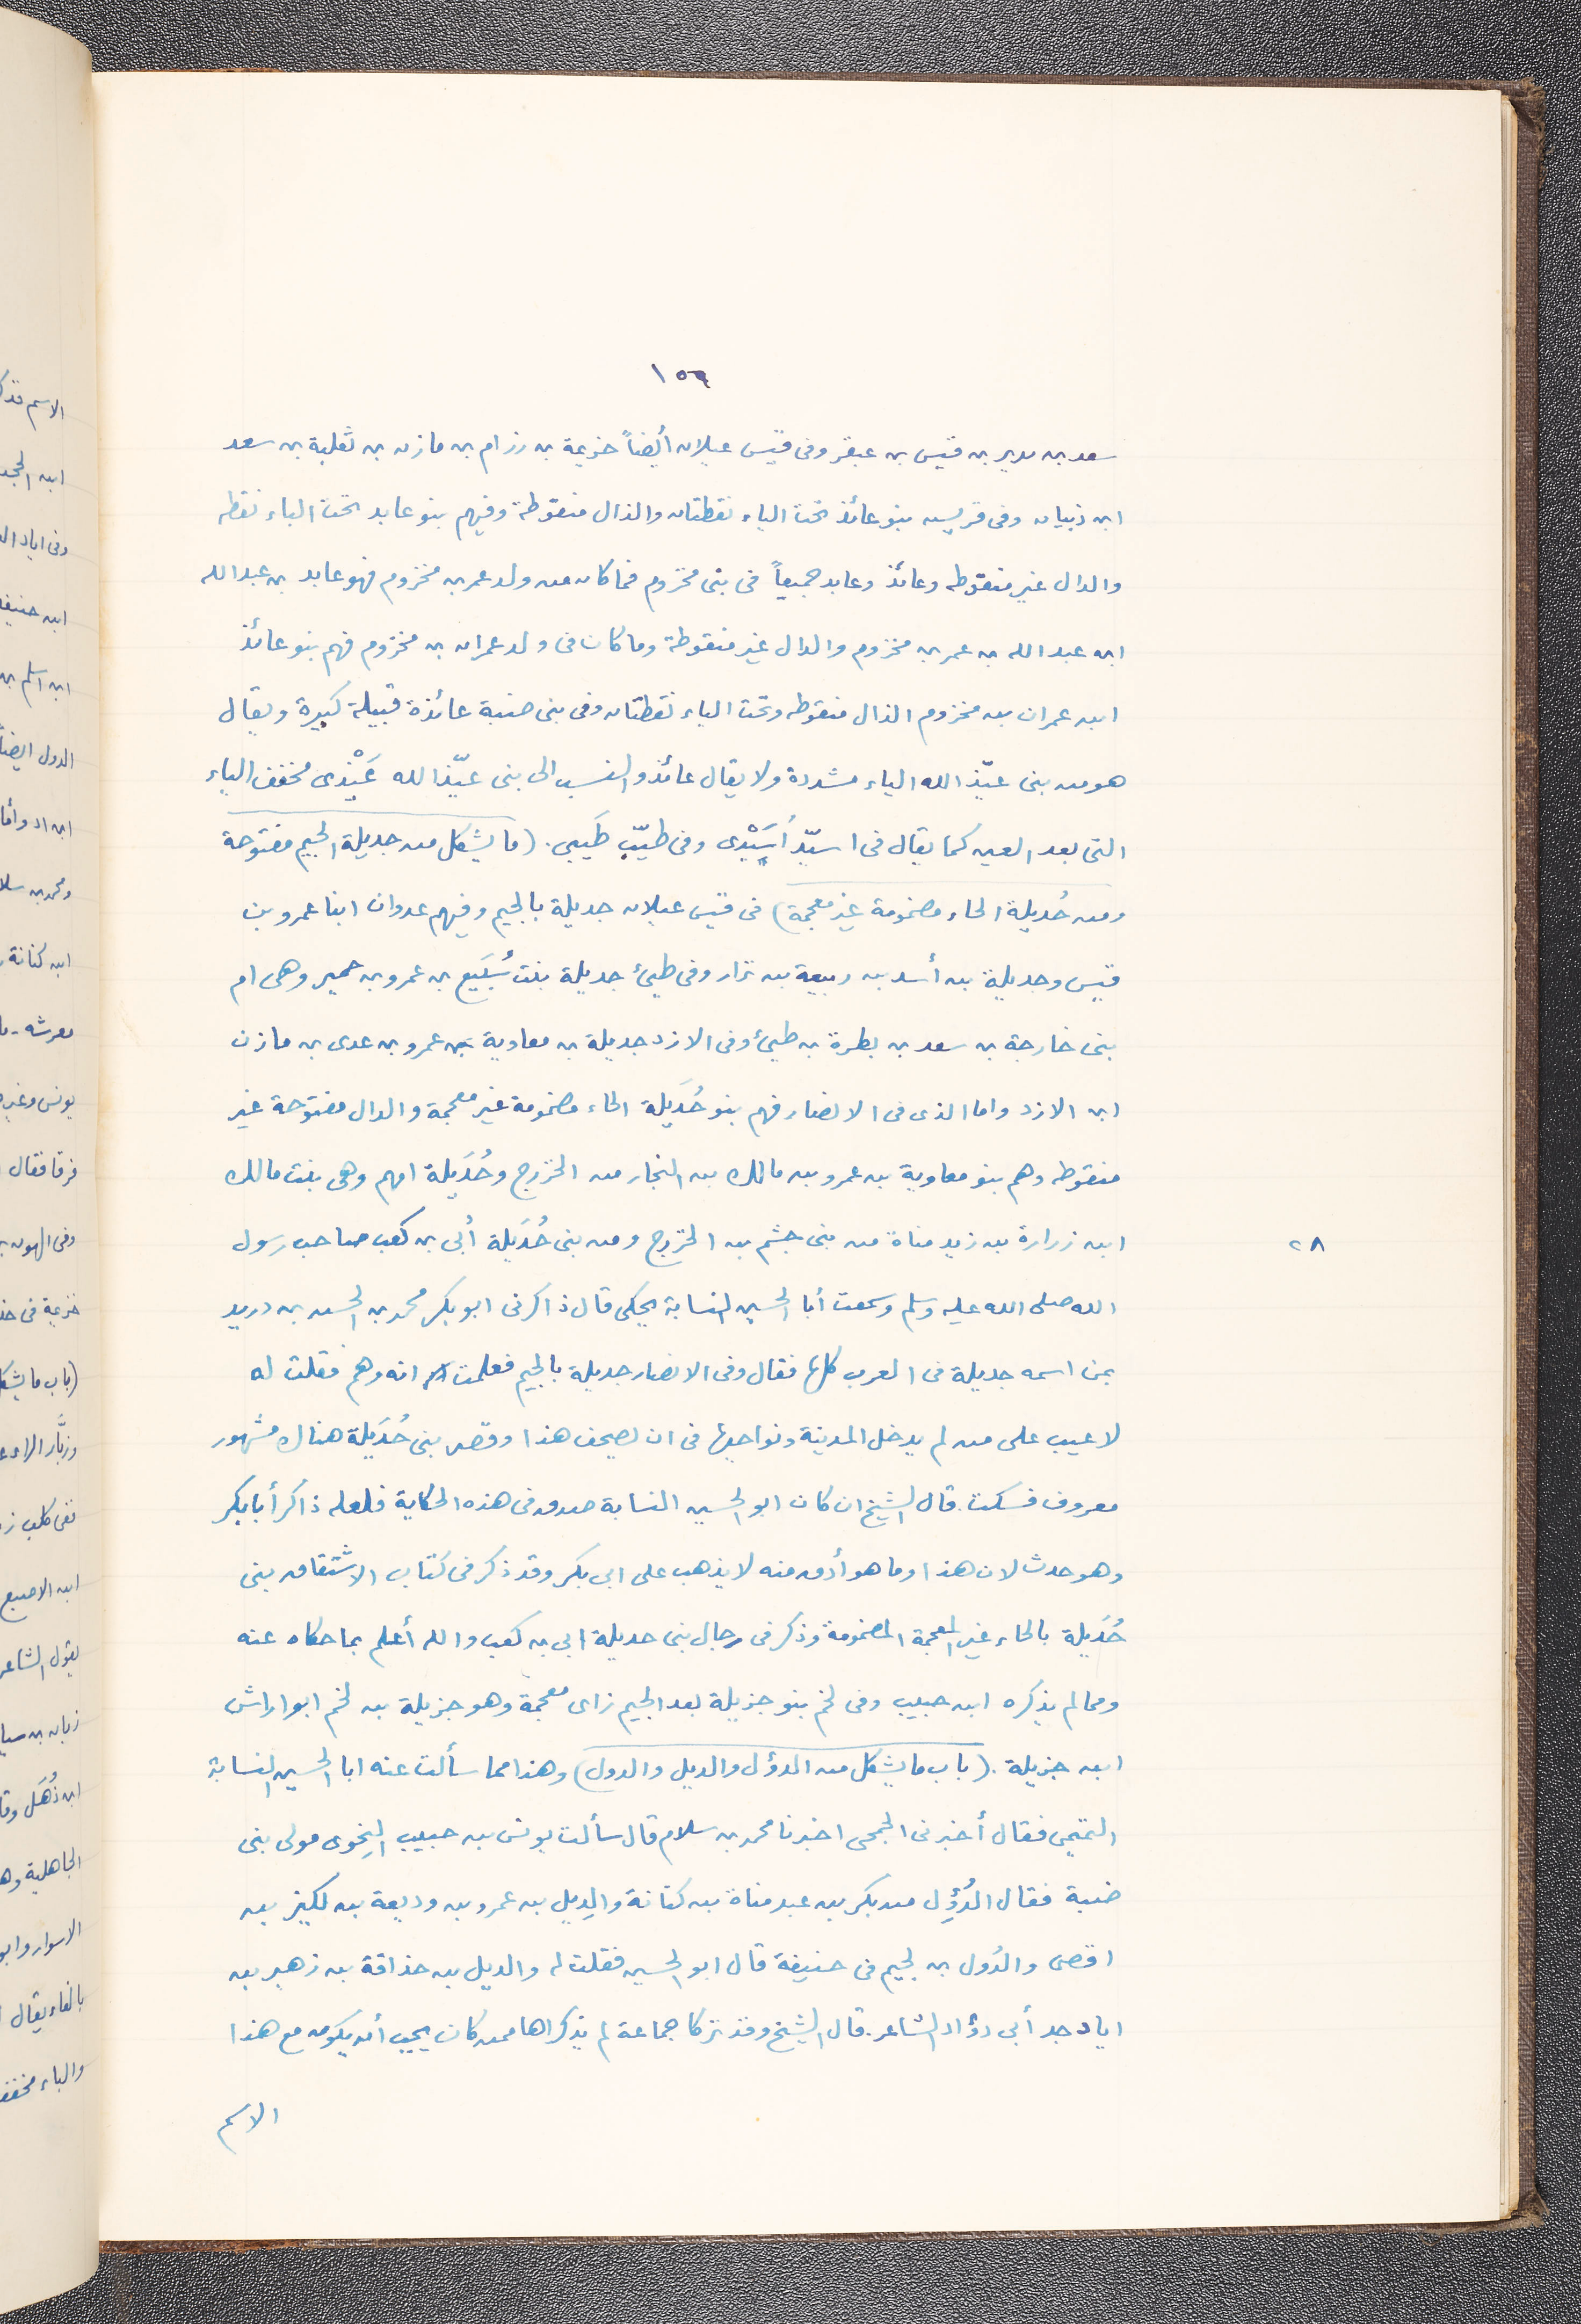 ١٥٩
سعد بن مرير بن قيس بن عبقر وفى قيس عيلان أيضاً خزيمة بن رزام بن مازن بن ثعلبة بن سعد
ابن ذبيان وفى قريش بنو عائذ تحت الياء نقطتان والذال منقوطة وفيهم بنو عابد تحت الباء نقطه
والدال غير منقوطه وعائذ وعابد جميعاً فى بنى مخزوم فما كان من ولد عمر بن مخزوم فهو عابد بن عبد الله
ابن عبد الله بن عمر بن مخزوم والدال غير منقوطة وما كان فى ولد عمران بن مخزوم فهم بنو عائذ
ابن عمران بن مخزوم الذال منقوطه وتحت الياء نقطتان وفى بنى ضبة عائذة قبيلة كبيرة ويقال
هو من بنى عيّذ الله الياء مشددة ولا يقال عائذ والنسب الى بنى عيّذ الله عَيْذى مخفف الياء
التى بعد العين كما يقال فى اسيّد أُسَيْدى وفى طيّب طَيبى. (ما يشكل من جديلة الجيم مفتوحة
ومن حُديلة الحاء مضمومة غير معجمة) فى قيس عيلان جديلة بالجيم وفيهم عدوان ابنا عمرو بن
قيس وجديلة بن أسد بن ربيعة بن نزار وفى طيئ جديلة بنت سُبَيع بن عمرو بن حمير وهى ام
بنى خارجة بن سعد بن بطرة بن طيئ وفى الازد جديلة بن معاوية بن عمرو بن عدى بن مازن
ابن الازد واما الذى فى الانصار فهم بنو حُدَيلة الحاء مضمومة غير معجمة والدال مفتوحة غير
منقوطه وهم بنو معاوية بن عمرو بن مالك بن النجار من الخزرج وحُدَيلة امهم وهى بنت مالك
ابن زرارة بن زيد مناة من بنى جشم بن الخزرج ومن بنى حُدَيلة أبى بن كعب صاحب رسول
٢٨
الله صلى الله عليه وسلم وسمعت أبا الحسين النسابة يحكى قال ذاكرنى ابو بكر محمد بن الحسن بن دريد
بمن اسمه جديلة فى العرب كلها فقال وفى الانصار جديلة بالجيم فعلمت انه وهم فقلت له
لا عيب على من لم يدخل المدينة ونواحيها فى ان يصحف هذا وقصر بنى حُدَيلة هناك مشهور
معروف فسكت. قال الشيخ ان كان ابو الحسين النسابة صدق فى هذه الحكاية فلعله ذاكر أبا بكر
وهو حدث لان هذا وما هو أدق منه لا يذهب على ابى بكر وقد ذكر فى كتاب الاشتقاق بنى
حُدَيلة بالحاء غير المعجمة المضمومة وذكر فى رجال بنى حديلة ابى بن كعب والله أعلم بما حكاه عنه
ومما لم يذكره ابن حبيب وفى لخم بنو جزيلة بعد الجيم زاى معجمة وهو جزيلة بن لخم ابو اراش
ابن جزيلة. (باب ما يشكل من الدؤل والديل والدول) وهذا مما سألت عنه ابا الحسين النسابة
التميمى فقال أخبرنى الجمحى اخبرنا محمد بن سلام قال سألت يونس بن حبيب النحوى مولى بنى
ضبة فقال الدُؤِل من بكر بن عبد مناة بن كنانة والدِيل بن عمرو بن وديعة بن لكيز بن
افصى والدُول بن لجيم فى حنيفة قال ابو الحسين فقلت له والديل بن حذاقة بن زهير بن
اياد جد أبى دؤاد الشاعر. قال الشيخ وقد تركا جماعة لم يذكراها ممن كان يجب أن يكون مع هذا
الاسم